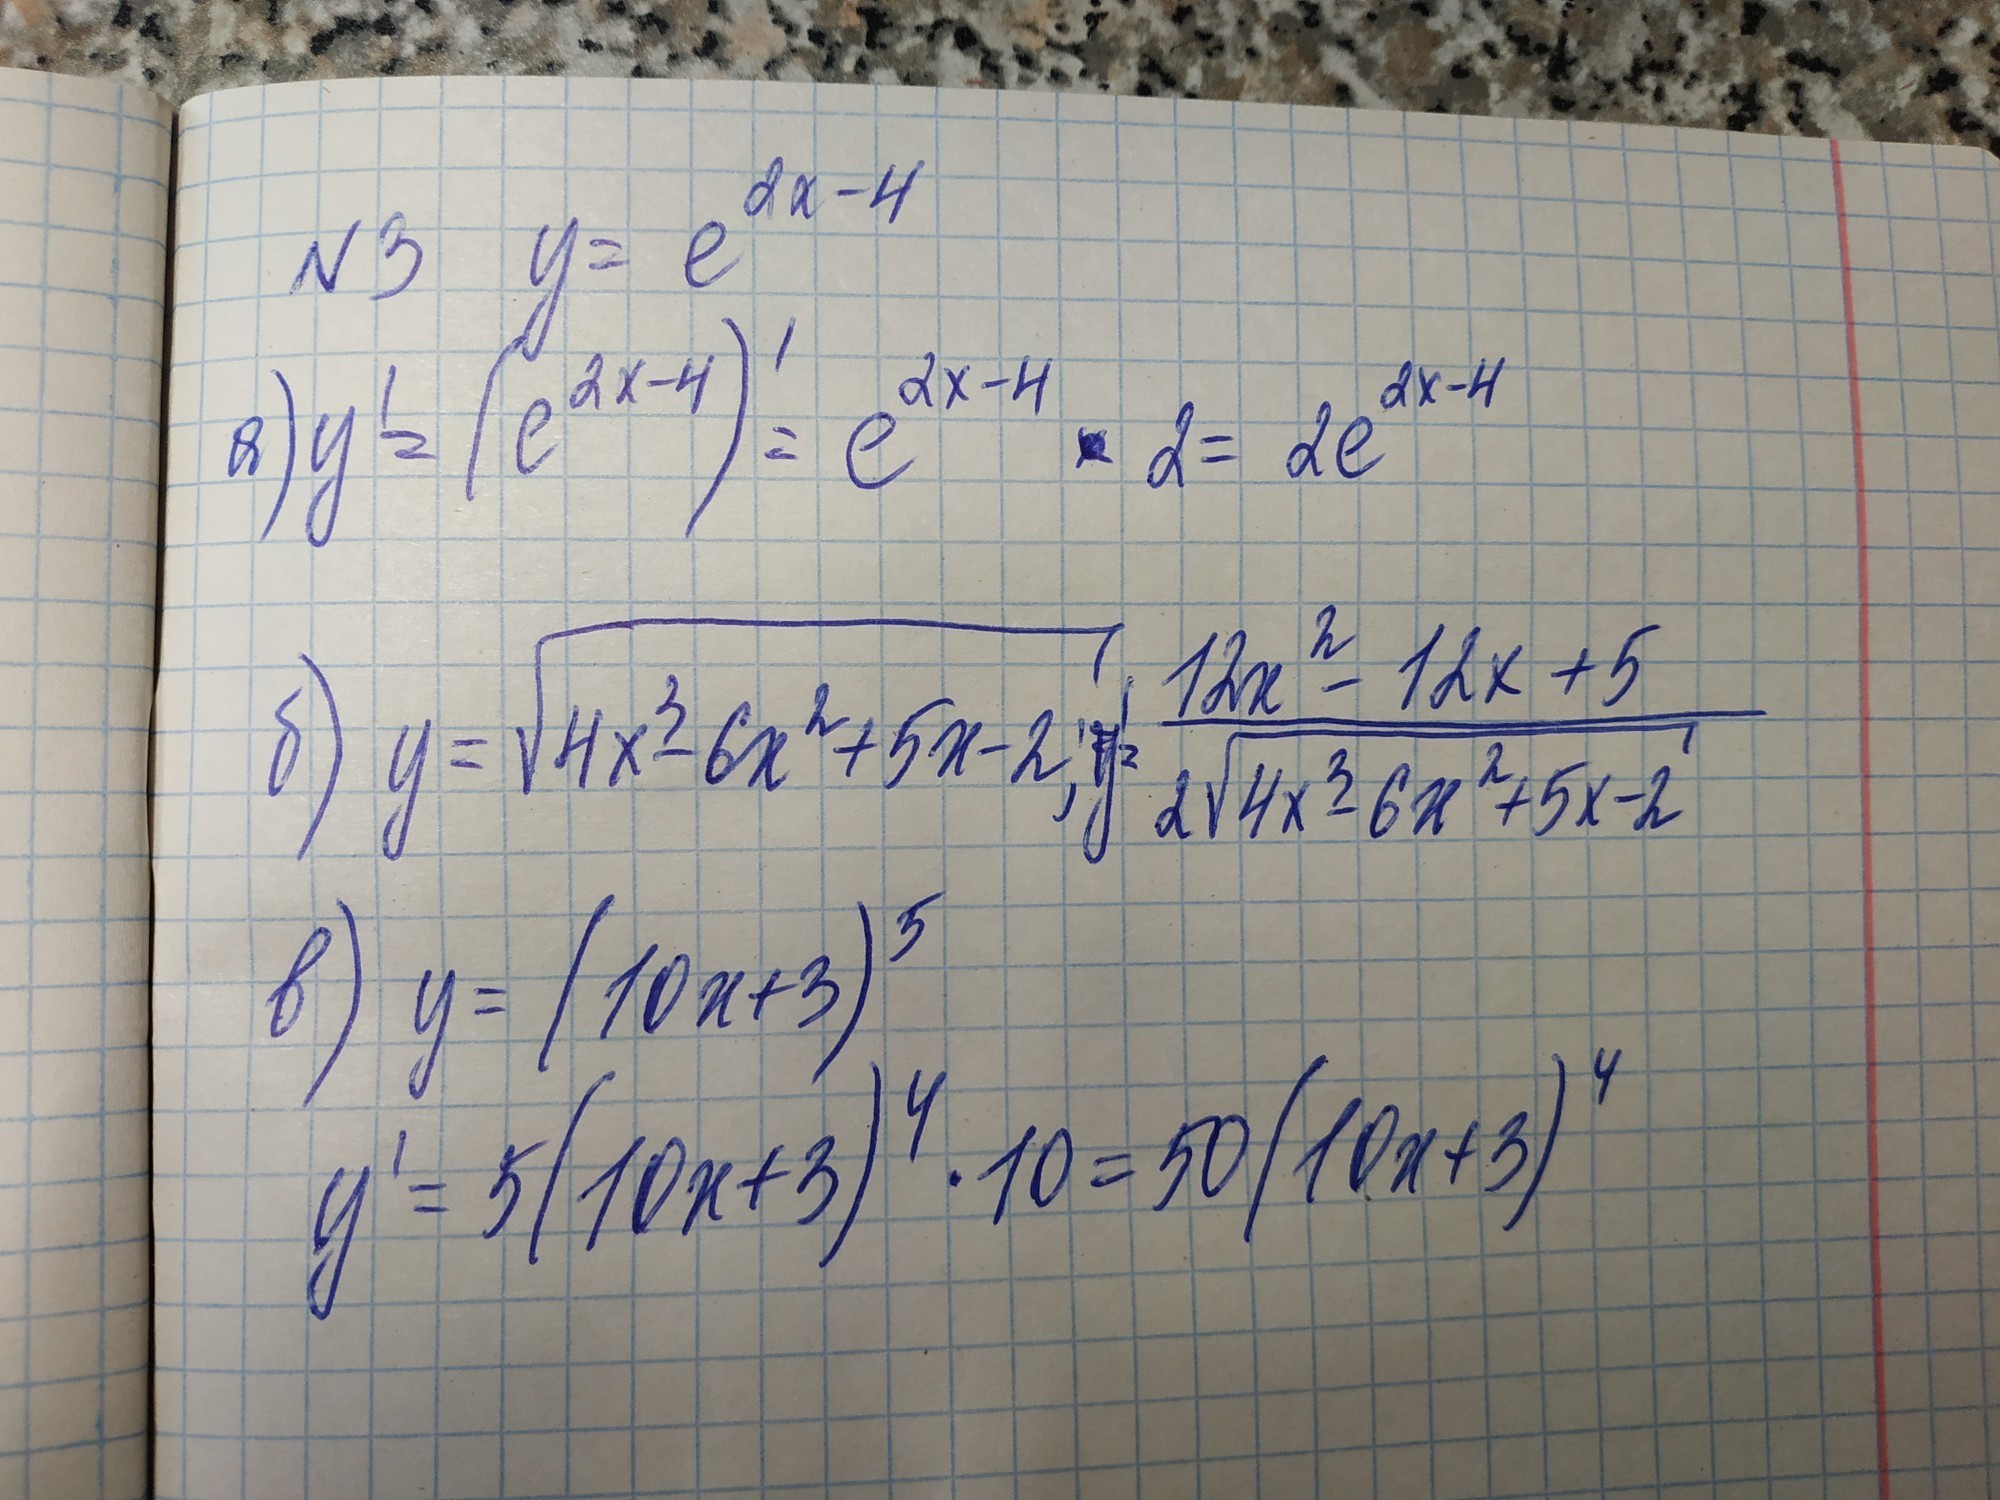 N3 y = e^{2x-4}
а) y' = (e^{2x-4})' = e^{2x-4} · 2 = 2e^{2x-4}
б) y = √(4x³-6x²+5x-2); y' = (12x²-12x+5)/(2√(4x³-6x²+5x-2))
в) y = (10x+3)⁵
y' = 5(10x+3)⁴ · 10 = 50(10x+3)⁴